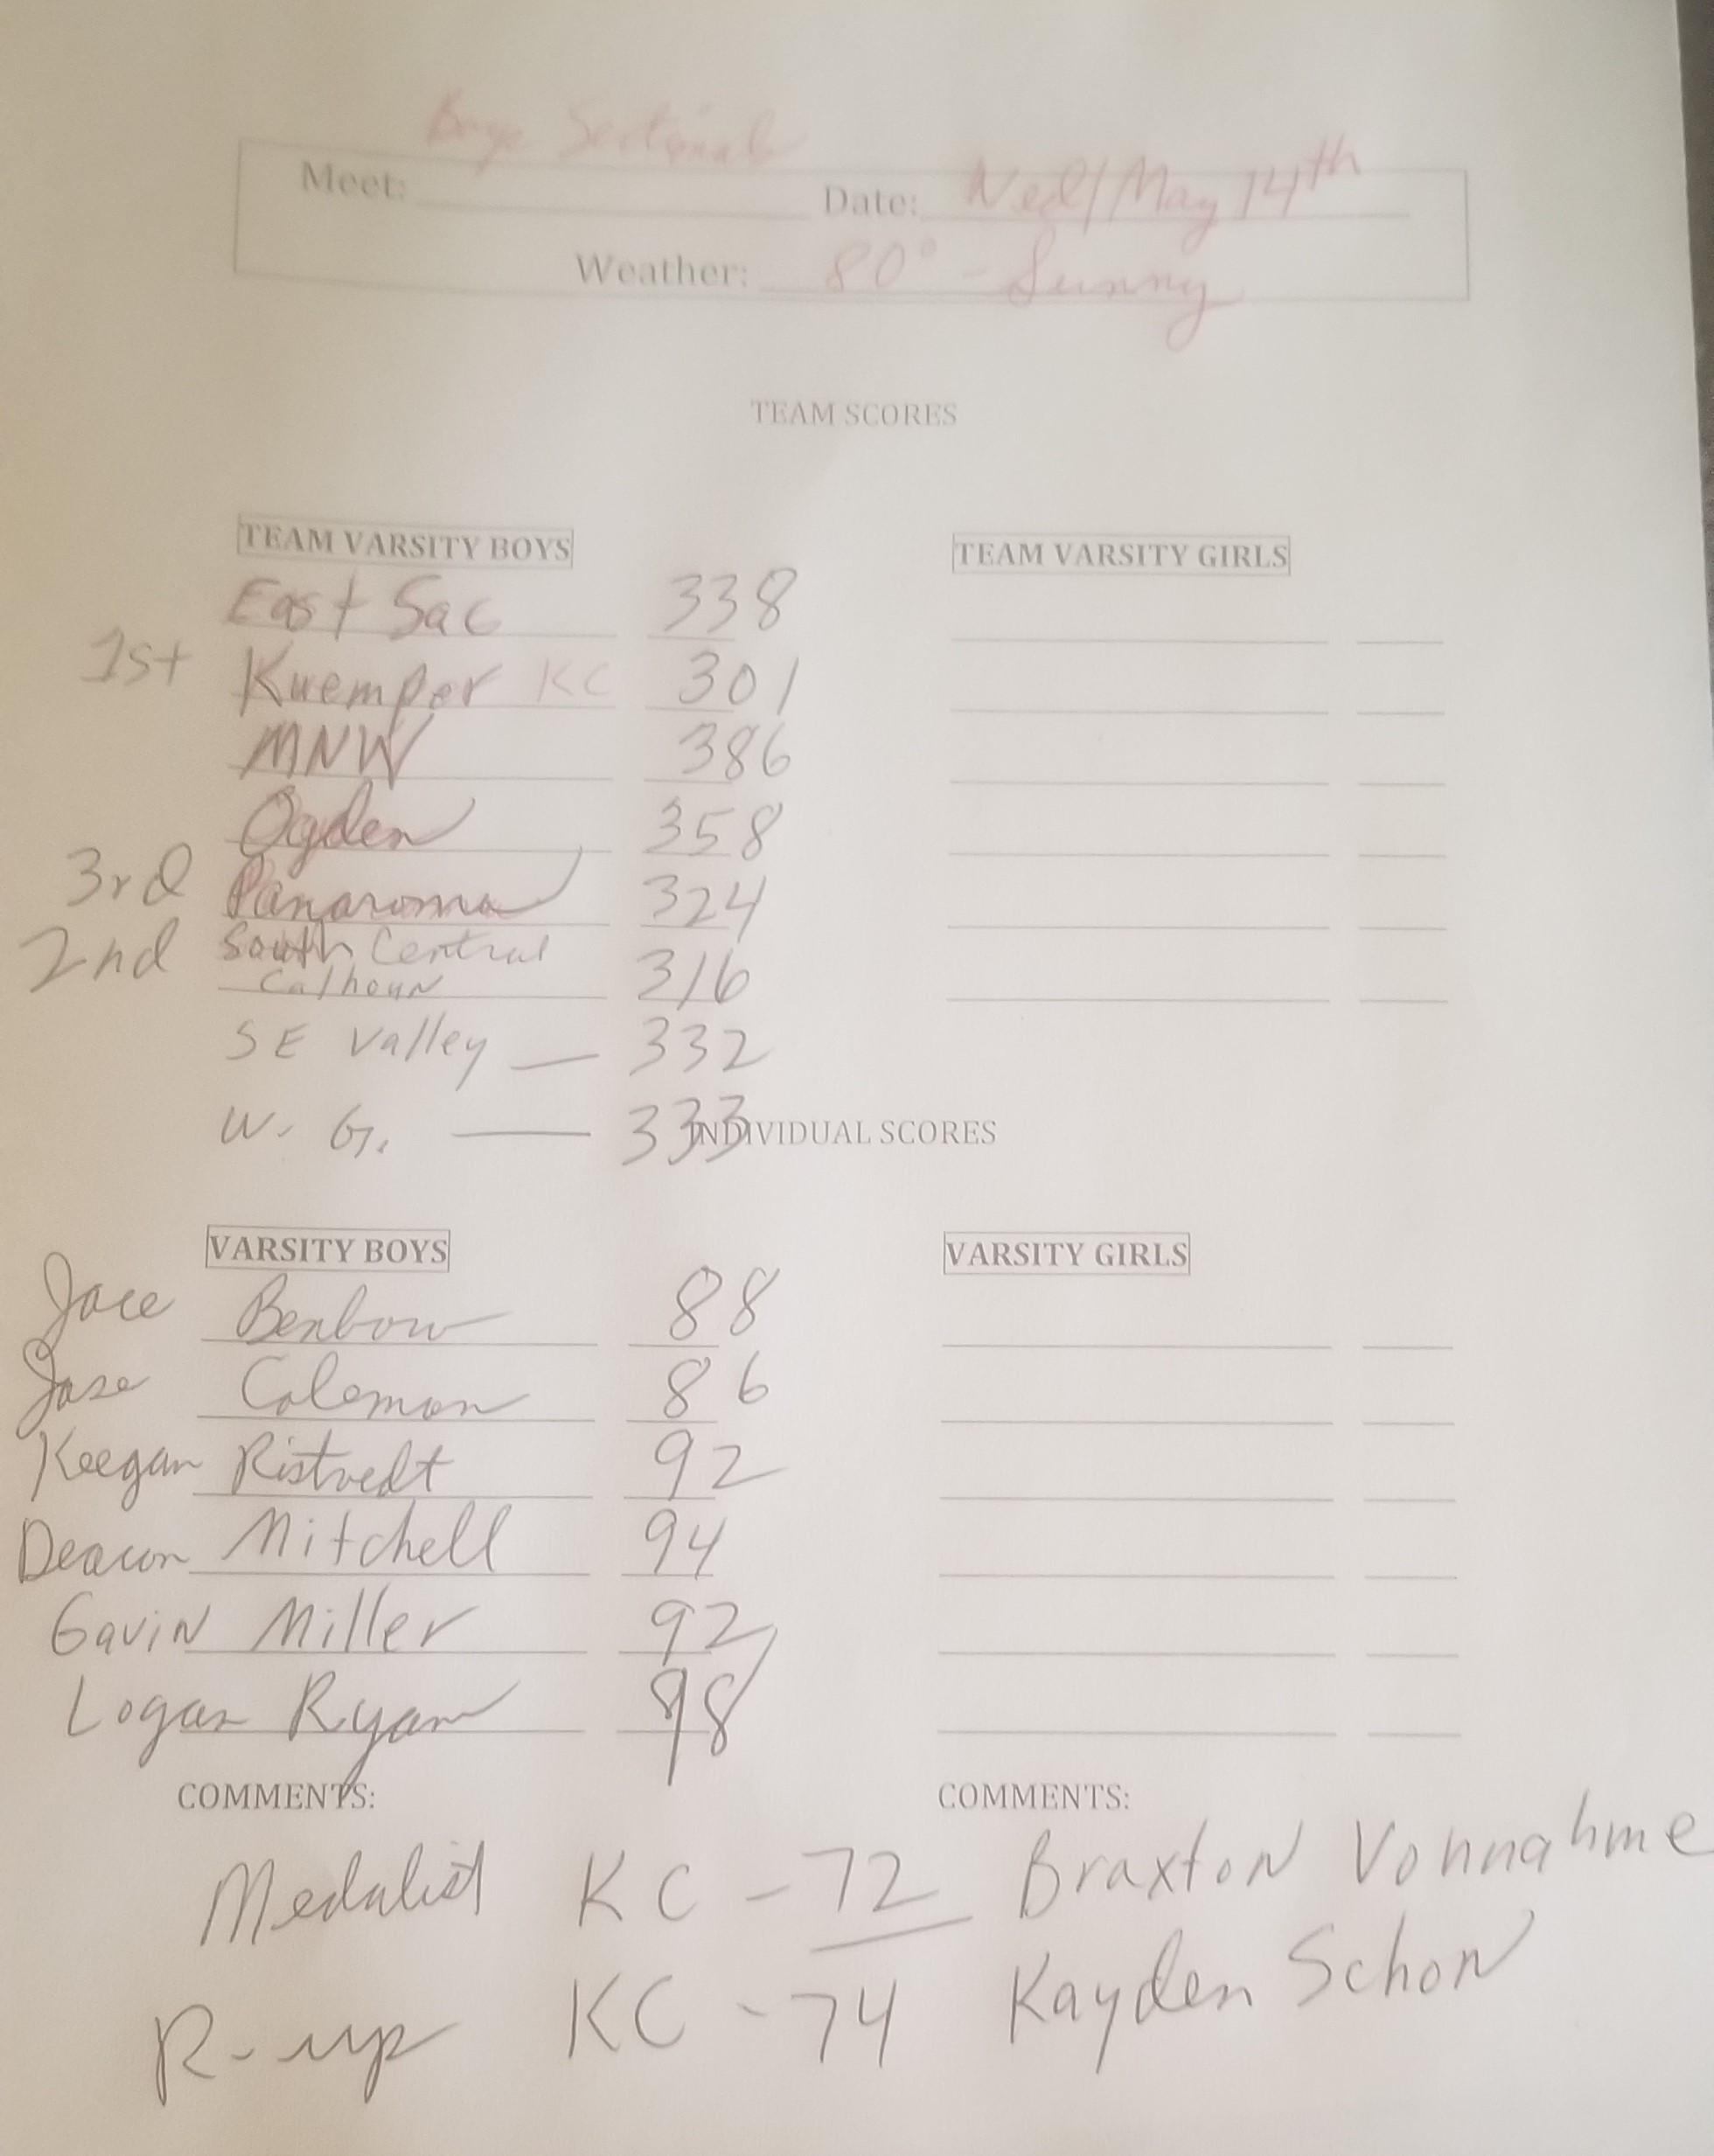 Boys Sectionals
Meet: Date: Wed/May 14th
Weather: 80° - Sunny
TEAM SCORES
TEAM VARSITY BOYS TEAM VARSITY GIRLS
East Sac 338
1st Kuemper KC 301
MNW 386
Ogden 358
3rd Panaroma 324
2nd South Central
Calhoun 316
SE Valley — 332
W. G. — 333
INDIVIDUAL SCORES
VARSITY BOYS VARSITY GIRLS
Jace Benbow 88
Jase Coleman 86
Keegan Ristvedt 92
Deacon Mitchell 94
Gavin Miller 92
Logan Ryan 98
COMMENTS: COMMENTS:
Medalist KC - 72 Braxton Vonnahme
R-up KC - 74 Kayden Schon